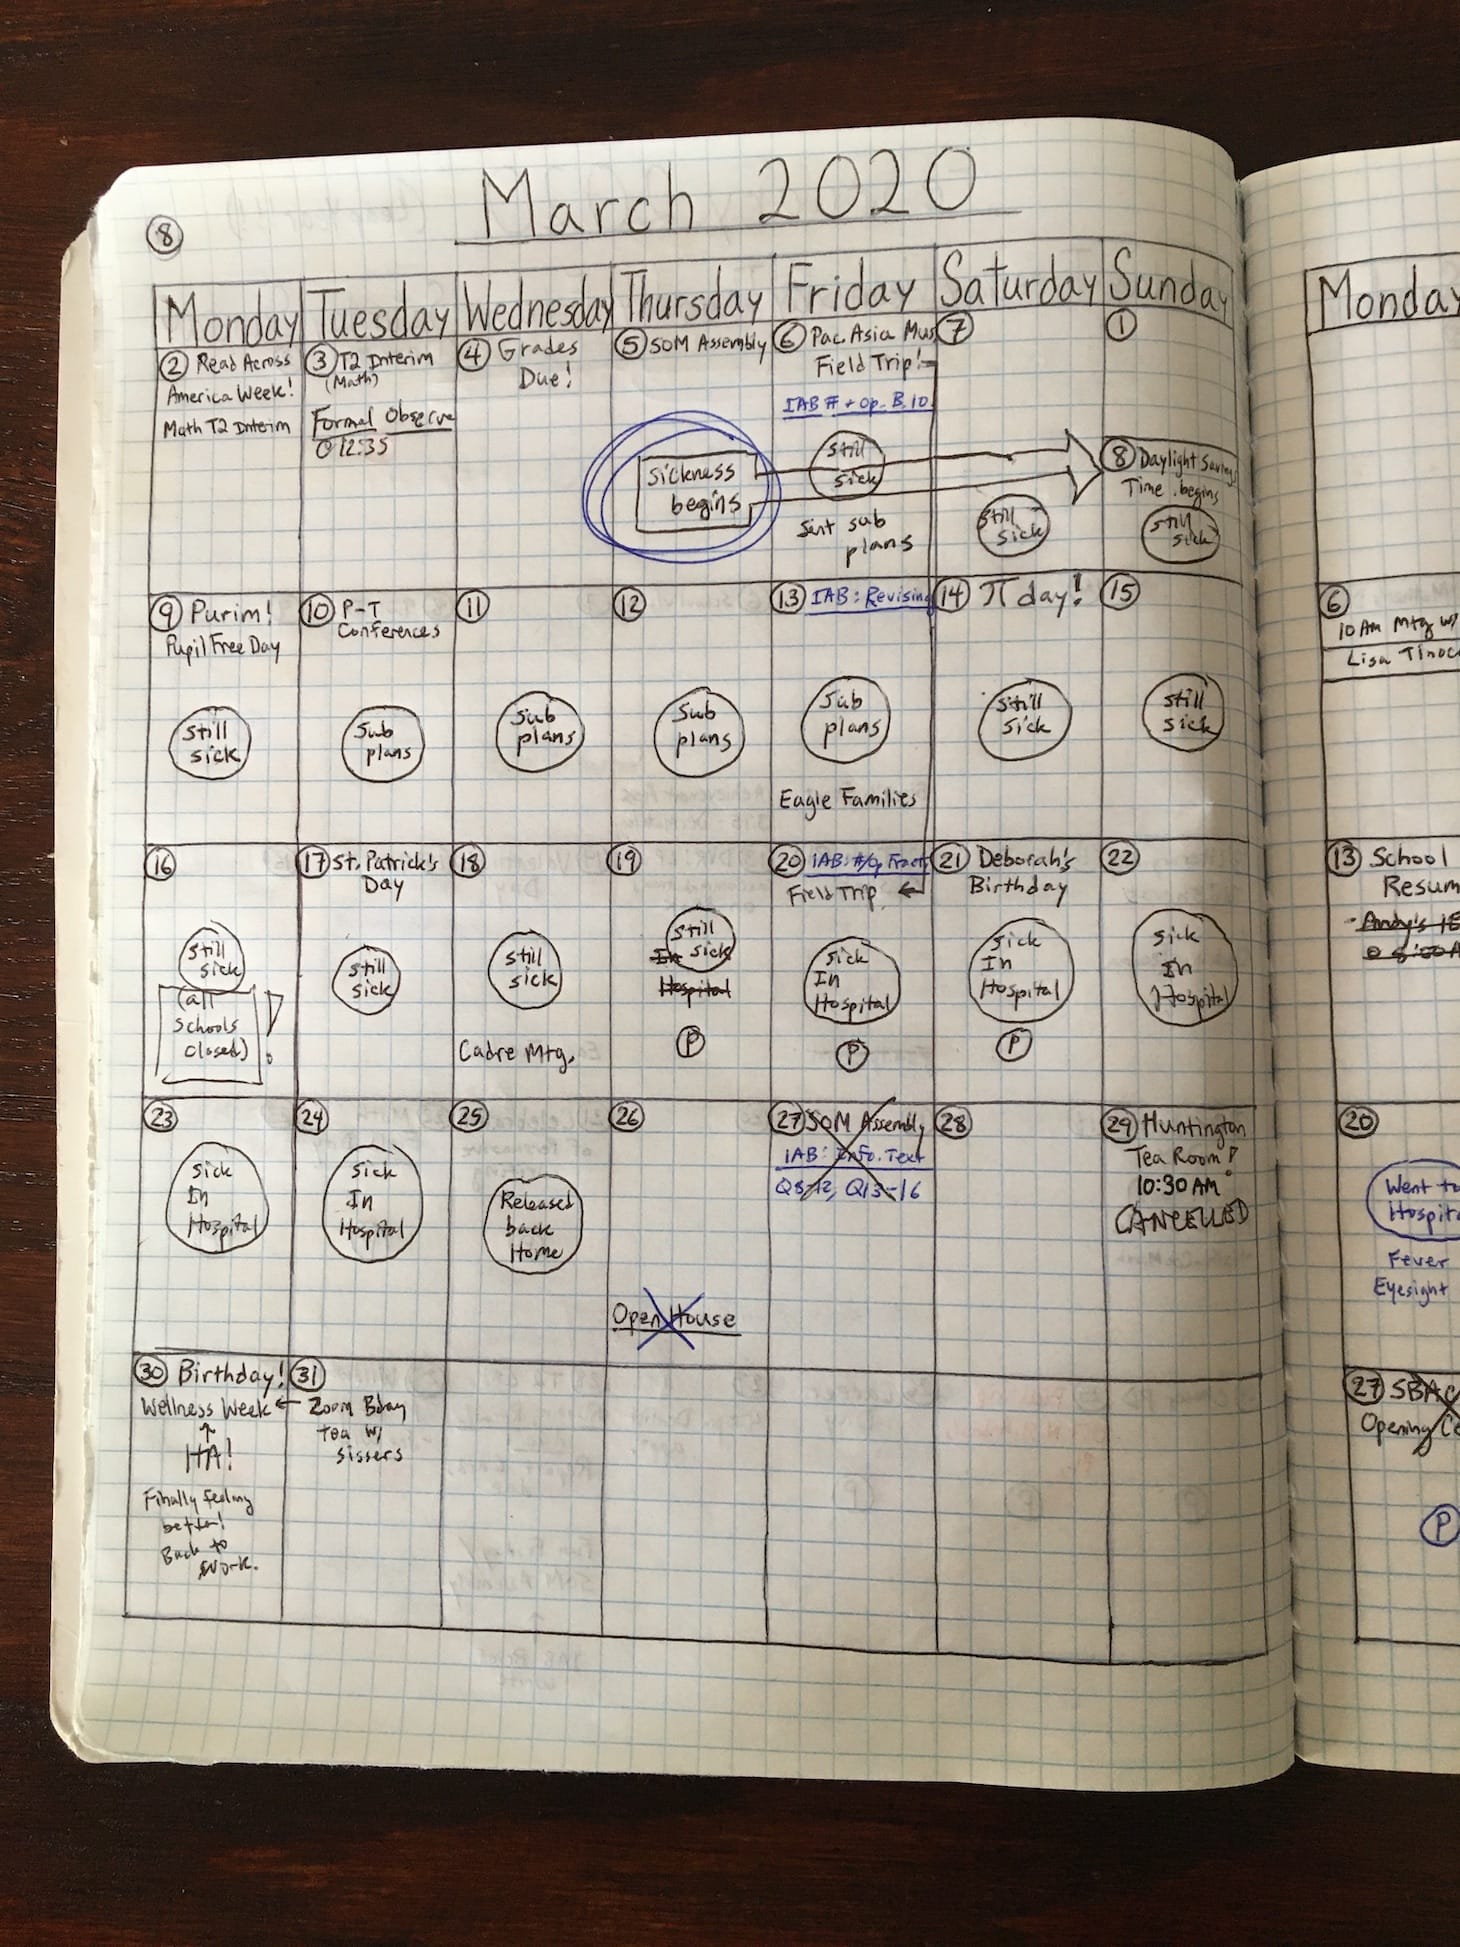 8
March 2020
Monday Tuesday Wednesday Thursday Friday Saturday Sunday
2 Read Across
America Week!
Math T2 Interim
3 T2 Interim
(Math)
Formal Observe
@ 12:35
4 Grades
Due!
5 SOM Assembly
Sickness
begins
6 Pac. Asia Mus
Field Trip!
IAB # + Op. B.10
Still
sick
Sent sub
plans
7
Still
sick
1
8 Daylight Savings
Time begins
Still
sick
9 Purim!
Pupil Free Day
Still
sick
10 P-T
Conferences
Sub
plans
11
Sub
plans
12
Sub
plans
13 IAB: Revising
Sub
plans
Eagle Families
14 π day!
Still
sick
15
Still
sick
16
Still
sick
(all
schools
closed)
!
17 St. Patrick's
Day
Still
sick
18
Still
sick
Cadre Mtg.
19
Still
In sick
Hospital
P
20 IAB: #/Op Fract
Field Trip
Sick
In
Hospital
P
21 Deborah's
Birthday
Sick
In
Hospital
P
22
Sick
In
Hospital
23
Sick
In
Hospital
24
Sick
In
Hospital
25
Released
back
Home
26
Open House
27 SOM Assembly
IAB: Info. Text
Q8-12, Q13-16
28
29 Huntington
Tea Room!
10:30 AM
CANCELLED
30 Birthday!
Wellness Week
HA!
Finally feeling
better!
Back to
work.
31
Zoom Bday
tea w/
sissers
Monday
6
10 AM Mtg w/
Lisa Tinoc
13 School
Resum
20
Went to
Hospita
Fever
Eyesight
27 SBAC
Opening Ce
P